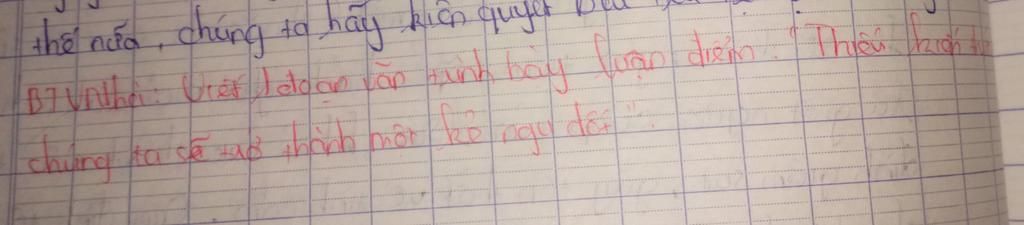 thế nữa, chúng ta hãy kiên quyết
BTVN: Viết 1 đoạn văn trình bày luận điểm: "Thiếu
chúng ta sẽ trở thành một kẻ ngu dốt".